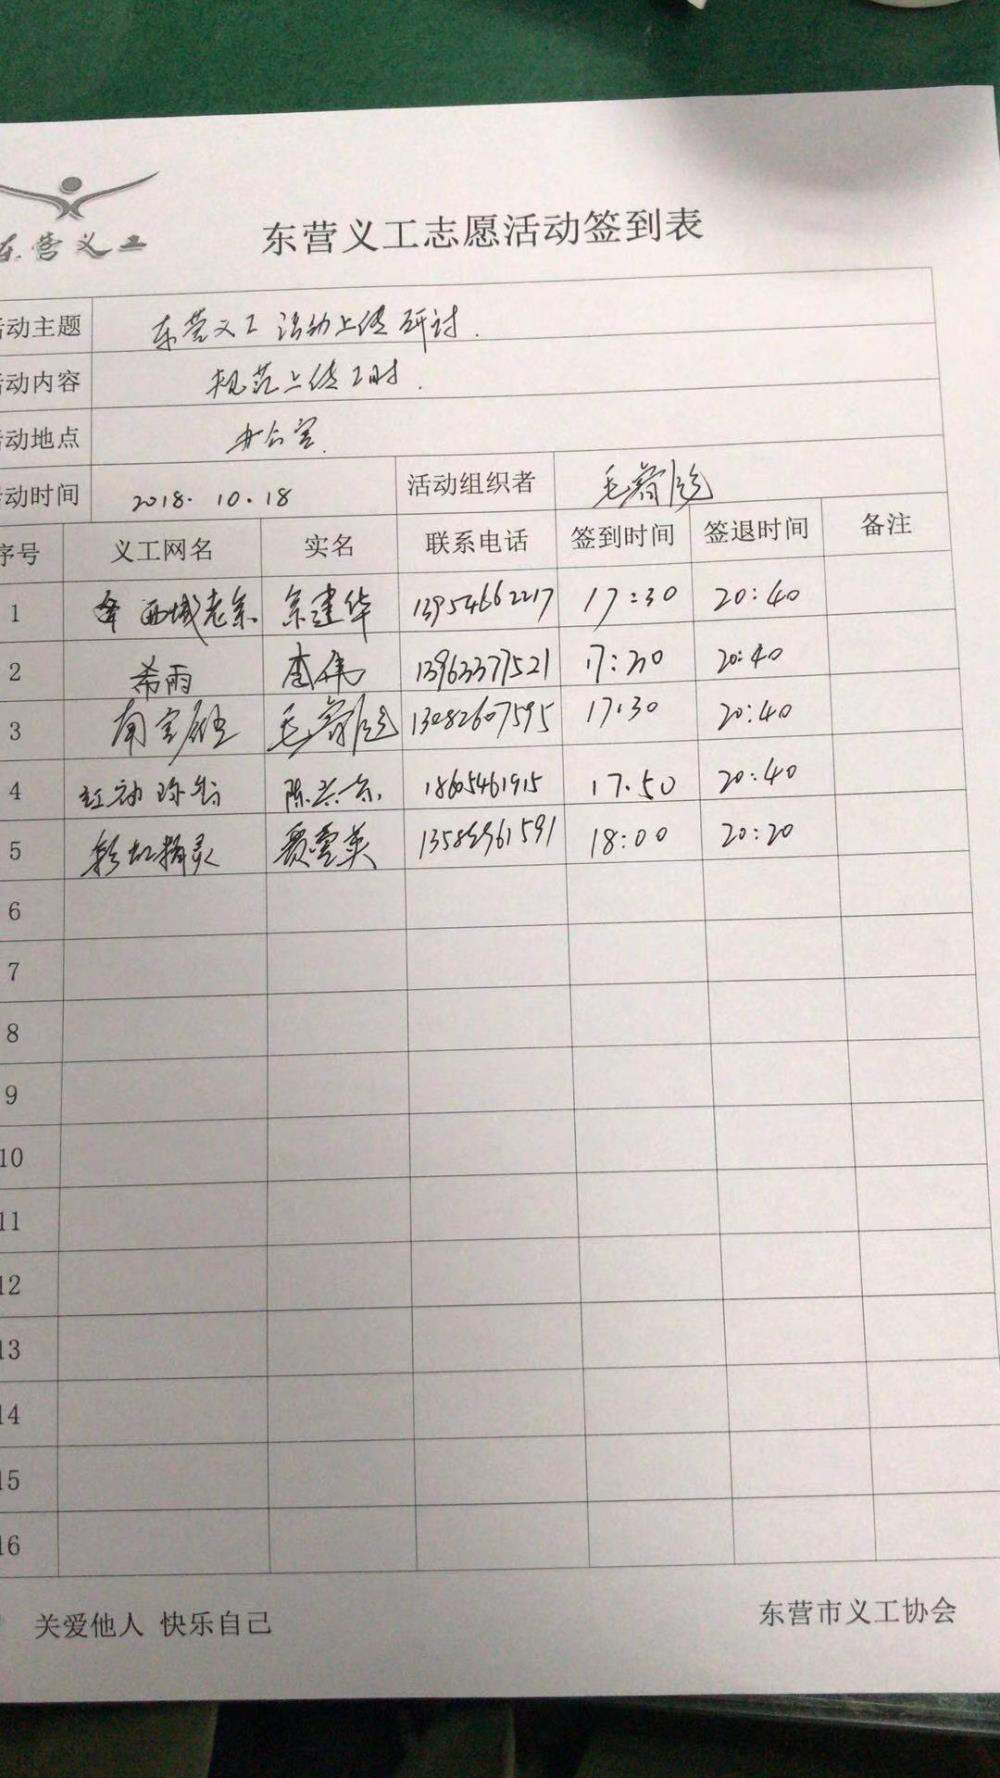 东营义工
东营义工志愿活动签到表
活动主题 东营义工活动上传研讨.
活动内容 规范上传工时.
活动地点 办公室.
活动时间 2018.10.18 活动组织者 毛
序号 义工网名 实名 联系电话 签到时间 签退时间 备注
1 西域老宗 宗建华 13954662217 17:30 20:40
2 希雨 李伟 13963377521 17:30 20:40
3 毛 13082607595 17:30 20:40
4 陈 18605461915 17.50 20:40
5 彩虹精灵 贾雪英 18:00 20:20
6
7
8
9
10
11
12
13
14
15
16
关爱他人 快乐自己 东营市义工协会